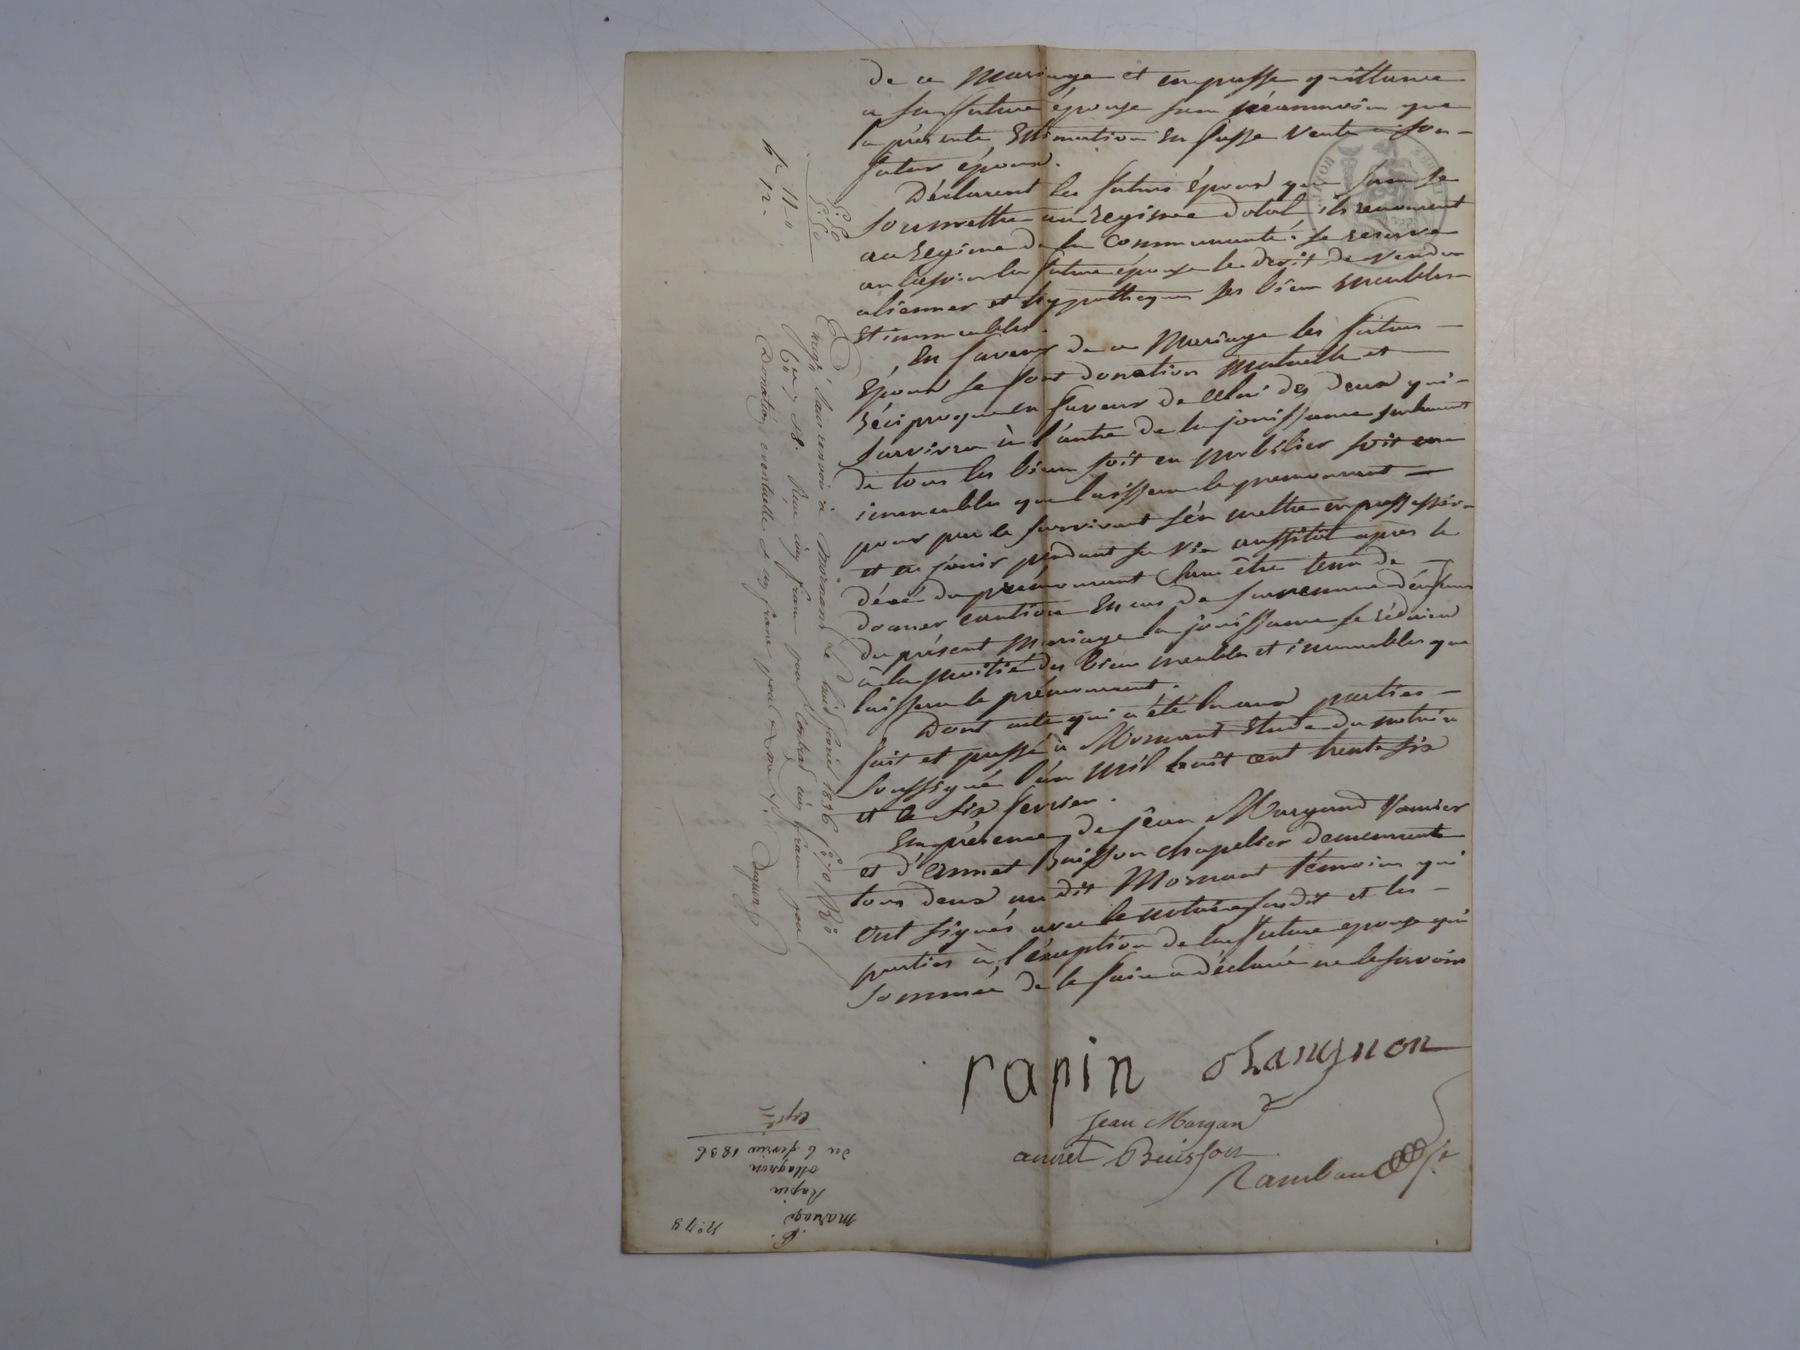 de ce Mariage et en passe quittance
a sa future épouse sans néanmoins que
la présente Estimation En fasse Vente a son
futur époux.
Déclarent les futurs époux que sans se
soumettre au Regime dotal ils renoncent
au Regime de la Communauté: se reserve
la future épouse le droit de vendre
alienner et hypothequer ses biens meubles
et immeubles.
En faveur de ce Mariage les futurs
Epoux se font donation Mutuelle et
Réciproque en faveur de celui des deux qui
survivra à l'autre de la jouissance seulement
de tous les biens soit en Mobilier soit en
immeubles que laissera le premourant
pour par le survivant s'en mettre en possession
et en jouir pendant sa vie aussitôt après le
décès du prémourant sans être tenu de
donner caution En cas de survenance d'enfans
du présent Mariage la jouissance se réduira
à la moitié des biens meubles et immeubles que
laissera le prémourant.
Dont acte qui a été lu aux parties
fait et passé à Mornant Etude du notaire
soussigné l'an Mil huit cent trente six
et le six fevrier.
En présence de jean Margand Vannier
et d'annet Buisson chapelier demeurants
tous deux au dit Mornant témoins qui
ont signés avec le notaire susdit et les
parties à l'éxeption de la future epouse qui
sommée de le faire a déclaré ne le savoir
rapin
Jean Margand
annet Buisson
Rambaud
5.50
5.50
11 "
Enregé sans renvoi à Mornant le huit février 1836 fo 70 Ro
Reçu cinq francs pour Contrat cinq francs pour
Donation eventuelle et un franc pour
No 78
Mariage
Rapin
ollagnon
du 6 fevrier 1836